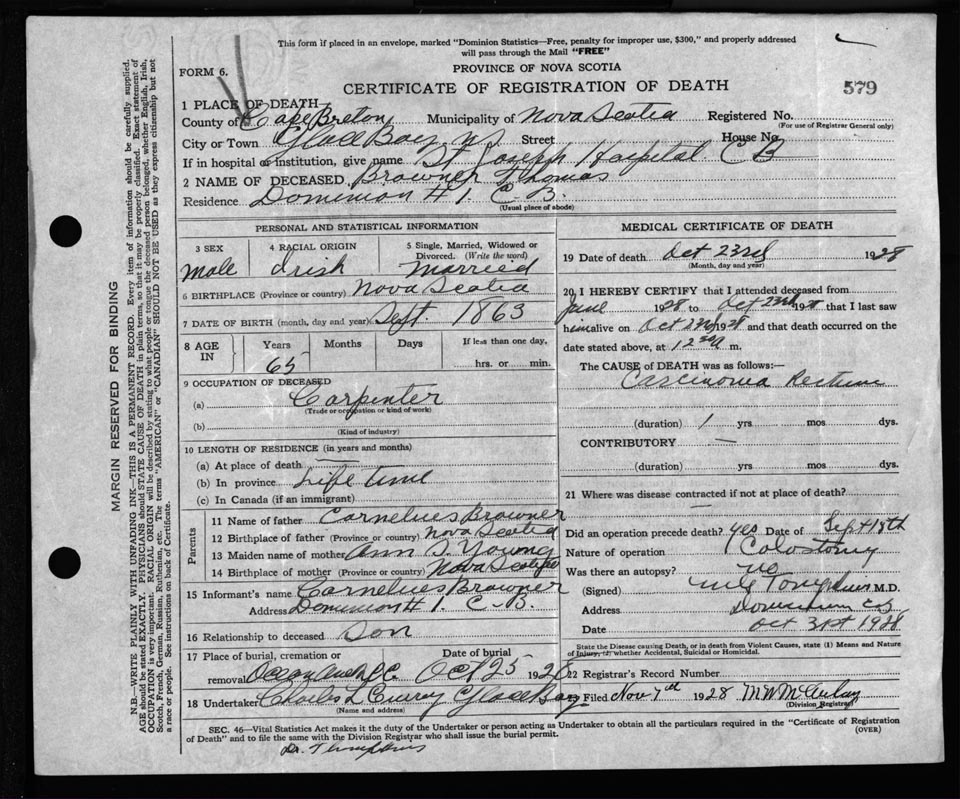 This form if placed in an envelope, marked "Dominion Statistics—Free, penalty for improper use, $300," and properly addressed
will pass through the Mail "FREE"
FORM 6.
PROVINCE OF NOVA SCOTIA
CERTIFICATE OF REGISTRATION OF DEATH
579
1 PLACE OF DEATH
County of Cape Breton Municipality of Nova Scotia Registered No.
(For use of Registrar General only)
City or Town Glace Bay N S Street House No.
If in hospital or institution, give name St Joseph Hospital C B
2 NAME OF DECEASED Browner Thomas
Residence Dominion # 1. C. B.
(Usual place of abode)
PERSONAL AND STATISTICAL INFORMATION
3 SEX 4 RACIAL ORIGIN 5 Single, Married, Widowed or Divorced. (Write the word)
Male Irish Married
6 BIRTHPLACE (Province or country) Nova Scotia
7 DATE OF BIRTH (month, day and year) Sept 1863
8 AGE IN Years Months Days If less than one day,
65 hrs. or min.
9 OCCUPATION OF DECEASED
(a) Carpenter
(Trade or occupation or kind of work)
(b)
(Kind of industry)
10 LENGTH OF RESIDENCE (in years and months)
(a) At place of death —
(b) In province Life time
(c) In Canada (if an immigrant)
Parents
11 Name of father Cornelius Browner
12 Birthplace of father (Province or country) Nova Scotia
13 Maiden name of mother Ann J. Young
14 Birthplace of mother (Province or country) Nova Scotia
15 Informant's name Cornelius Browner
Address Dominion # 1. C.B.
16 Relationship to deceased Son
17 Place of burial, cremation or removal Date of burial
Oct 25 1928
18 Undertaker Charles L Curray Glace Bay
(Name and address)
MEDICAL CERTIFICATE OF DEATH
19 Date of death Oct 23rd 1928
(Month, day and year)
20 I HEREBY CERTIFY that I attended deceased from
June 1928 to Oct 23rd 1928 that I last saw
him alive on Oct 1928 and that death occurred on the
date stated above, at m.
The CAUSE of DEATH was as follows:—
Carcinoma Rectum
(duration) 1 yrs mos dys.
CONTRIBUTORY —
(duration) yrs. mos. dys.
21 Where was disease contracted if not at place of death?
Did an operation precede death? yes Date of Sept 18th
Nature of operation Colostomy
Was there an autopsy? no
(Signed) M.D.
Address Dominion CB
Date Oct 31st 1928
State the Disease causing Death, or in death from Violent Causes, state (1) Means and Nature of Injury, (2) whether Accidental, Suicidal or Homicidal.
22 Registrar's Record Number
Filed Nov 7th 1928 M W McAulay
(Division Registrar)
SEC. 46—Vital Statistics Act makes it the duty of the Undertaker or person acting as Undertaker to obtain all the particulars required in the "Certificate of Registration
of Death" and to file the same with the Division Registrar who shall issue the burial permit.
(OVER)
Dr. Tompkins
MARGIN RESERVED FOR BINDING
N.B.—WRITE PLAINLY WITH UNFADING INK—THIS IS A PERMANENT RECORD. Every item of information should be carefully supplied.
AGE should be stated EXACTLY. PHYSICIANS should STATE CAUSE OF DEATH in plain terms, so that it may be properly classified. Exact statement of
OCCUPATION is very important. RACIAL ORIGIN will be described by stating to what people or tongue the deceased person belonged, whether English, Irish,
Scotch, French, German, Russian, Ruthenian, etc. The terms "AMERICAN" or "CANADIAN" SHOULD NOT BE USED as they express citizenship but not
a race or people. See instructions on back of Certificate.